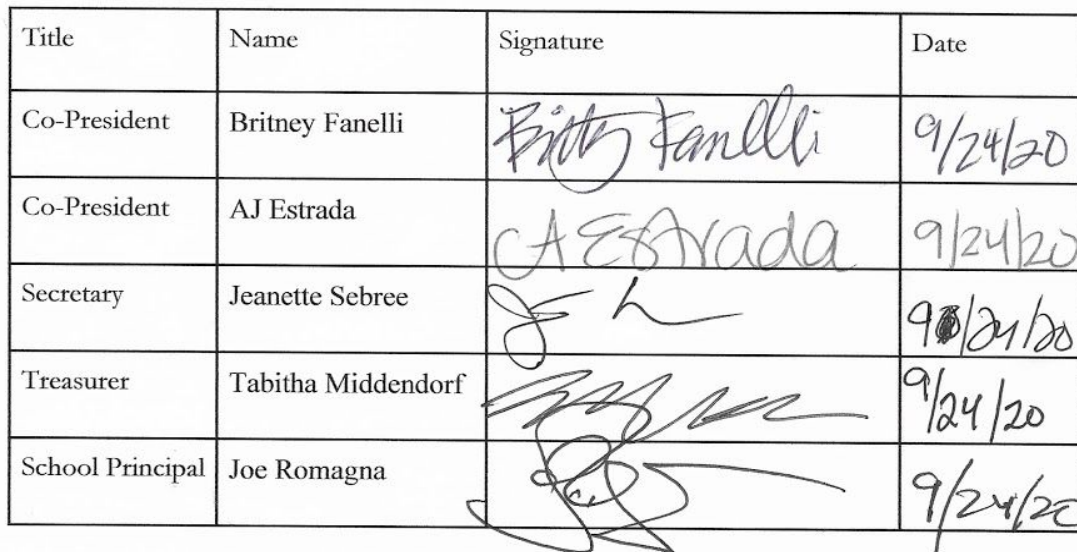 Title Name Signature Date
Co-President Britney Fanelli Britty Fanelli 9/24/20
Co-President AJ Estrada A Estrada 9/24/20
Secretary Jeanette Sebree 9/24/20
Treasurer Tabitha Middendorf 9/24/20
School Principal Joe Romagna 9/24/20